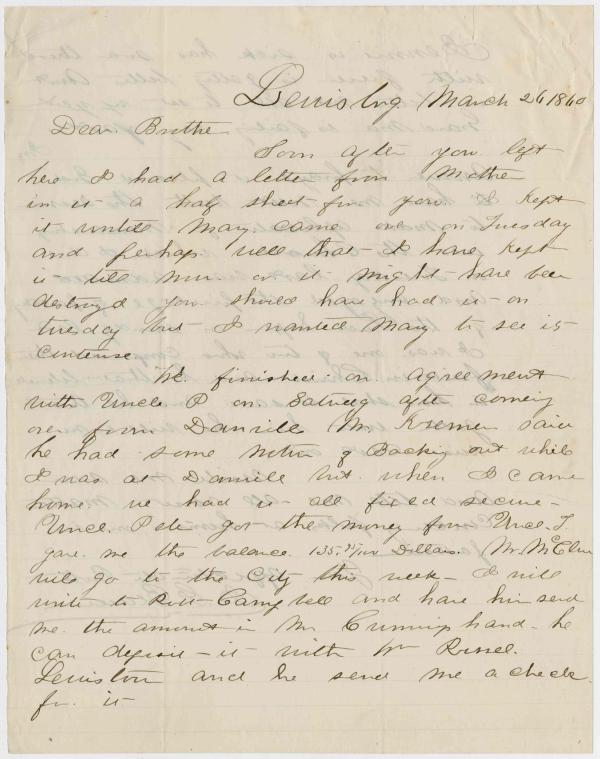 Lewisbrg March 26 1860
Dear Brothe
Soon after you left
here I had a letter from Mothe
in it a half sheet for you. I kept
it untill Mary came over on Tuesday
and perhaps well that I have kept
it till now or it might have been
destroyd you should have had it on
tuesday but I wanted Mary to see its
contense.
We finished on agreement
with Uncle P on Saturdy after coming
over from Danville Mr Kremer said
he had some notion of Backing out while
I was at Danville but when I came
home we had it all fixed secure
Uncle Pete got the money from Uncle T
gave me the balance 135. /100 Dollars. Mr. McClure
will go to the City this week I will
write to Campbell and have him send
me the amount in Mr hand he
can deposit it with Wm Russel.
Lewistown and he send me a check
for it